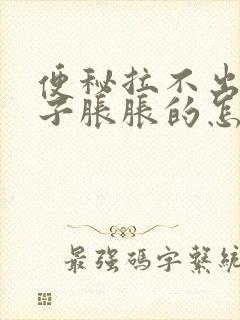 便秘拉不出
子脹脹的怎
最強碼字繫統